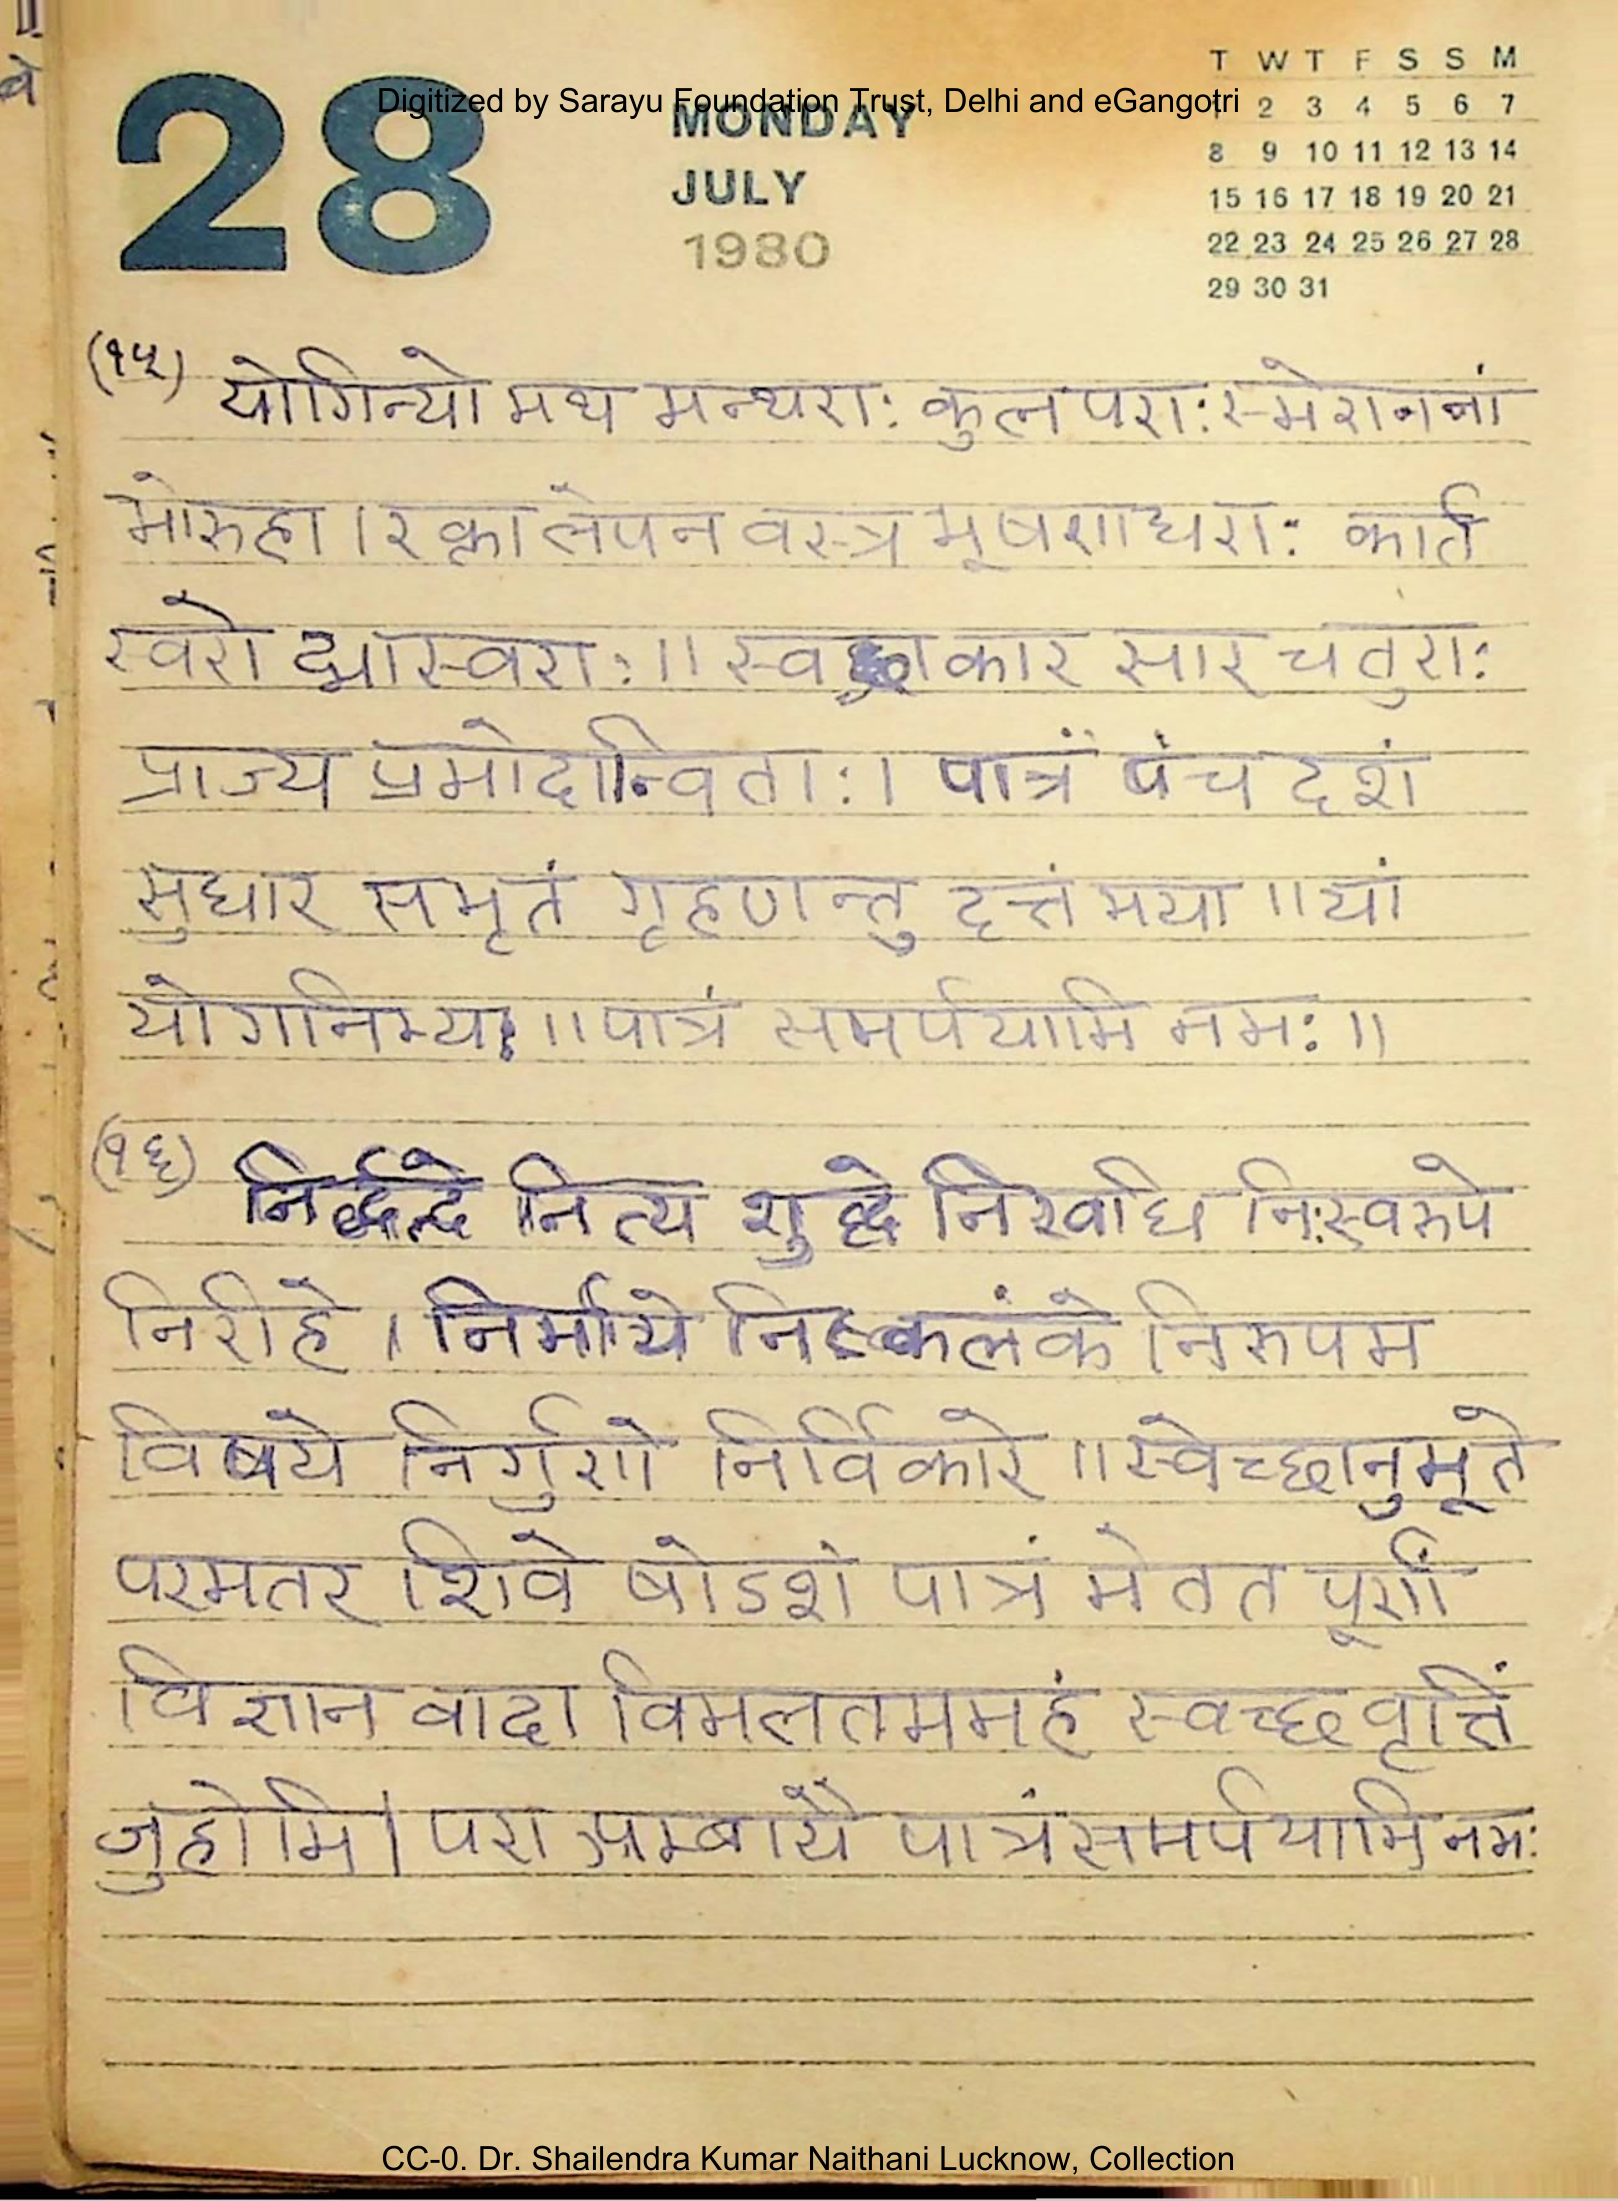 28
Digitized by Sarayu Foundation Trust, Delhi and eGangotri
MONDAY
JULY
1980
T W T F S S M
1 2 3 4 5 6 7
8 9 10 11 12 13 14
15 16 17 18 19 20 21
22 23 24 25 26 27 28
29 30 31
(१५) योगिन्यो मथ मन्थराः कुल पराः स्मेराननां
मोरुहा । रक्ता लेपन वस्त्र भूषणाधराः कार्त
स्वरो द्भास्वराः ॥ स्व कार सार चतुराः
प्राज्य प्रमोदान्विताः । पात्रं पंच दशं
सुधार समृतं गृहणन्तु दत्तं मया ॥ यां
योगानिम्यः ॥ पात्रं समर्पयामि नमः ॥
(१६) निर्द्वन्दे नित्य शुद्धे निरवधि निःस्वरुपे
निरीहे । निर्माये निष्कलंके निरुपम
विषये निर्गुणे निर्विकारे ॥ स्वेच्छानुभूते
परमतर शिवे षोडशं पात्रं मेतत पूर्णां
विज्ञान वादा विमलतममहं स्वच्छ वृत्तिं
जुहोमि । परा प्रम्बायै पात्रं समर्पयामि नमः
CC-0. Dr. Shailendra Kumar Naithani Lucknow, Collection